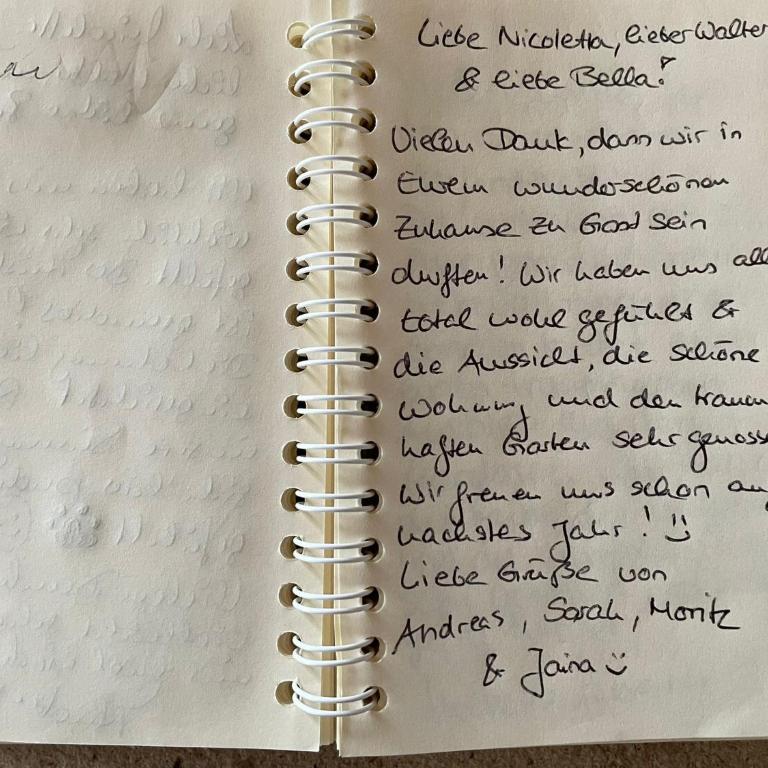 Liebe Nicoletta, lieber Walter
& liebe Bella!
Vielen Dank, dass wir in
Eurem wunderschönen
Zuhause zu Gast sein
durften! Wir haben uns all
total wohl gefühlt &
die Aussicht, die schöne
Wohnung und den traum
haften Garten sehr genoss
Wir freuen uns schon au
nächstes Jahr! :)
Liebe Grüße von
Andreas, Sarah, Moritz
& Jaina :)